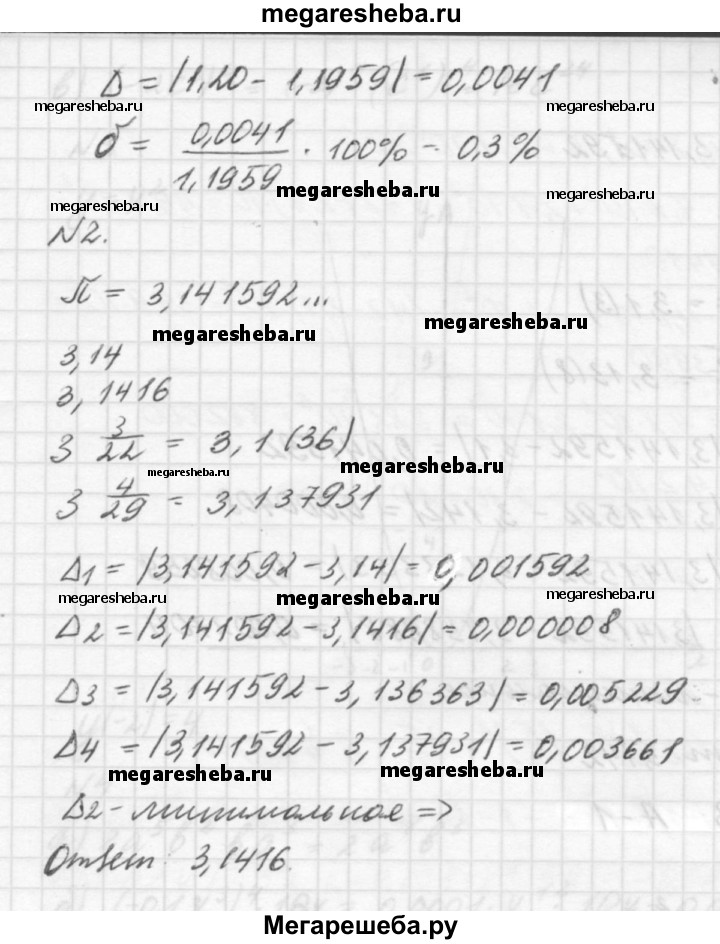 megaresheba.ru
Δ = |1,20 - 1,1959| = 0,0041
megaresheba.ru megaresheba.ru
δ = 0,0041 / 1,1959 · 100% - 0,3%
megaresheba.ru megaresheba.ru megaresheba.ru
№2.
π = 3,141592...
megaresheba.ru megaresheba.ru
3,14
3,1416
3 3/22 = 3,1(36)
megaresheba.ru megaresheba.ru
3 4/29 = 3,137931
Δ1 = |3,141592 - 3,14| = 0,001592
megaresheba.ru megaresheba.ru megaresheba.ru
Δ2 = |3,141592 - 3,1416| = 0,000008
Δ3 = |3,141592 - 3,136363| = 0,005229
Δ4 = |3,141592 - 3,137931| = 0,003661
megaresheba.ru megaresheba.ru
Δ2 - минимальное =>
Ответ 3,1416.
Мегарешеба.ру